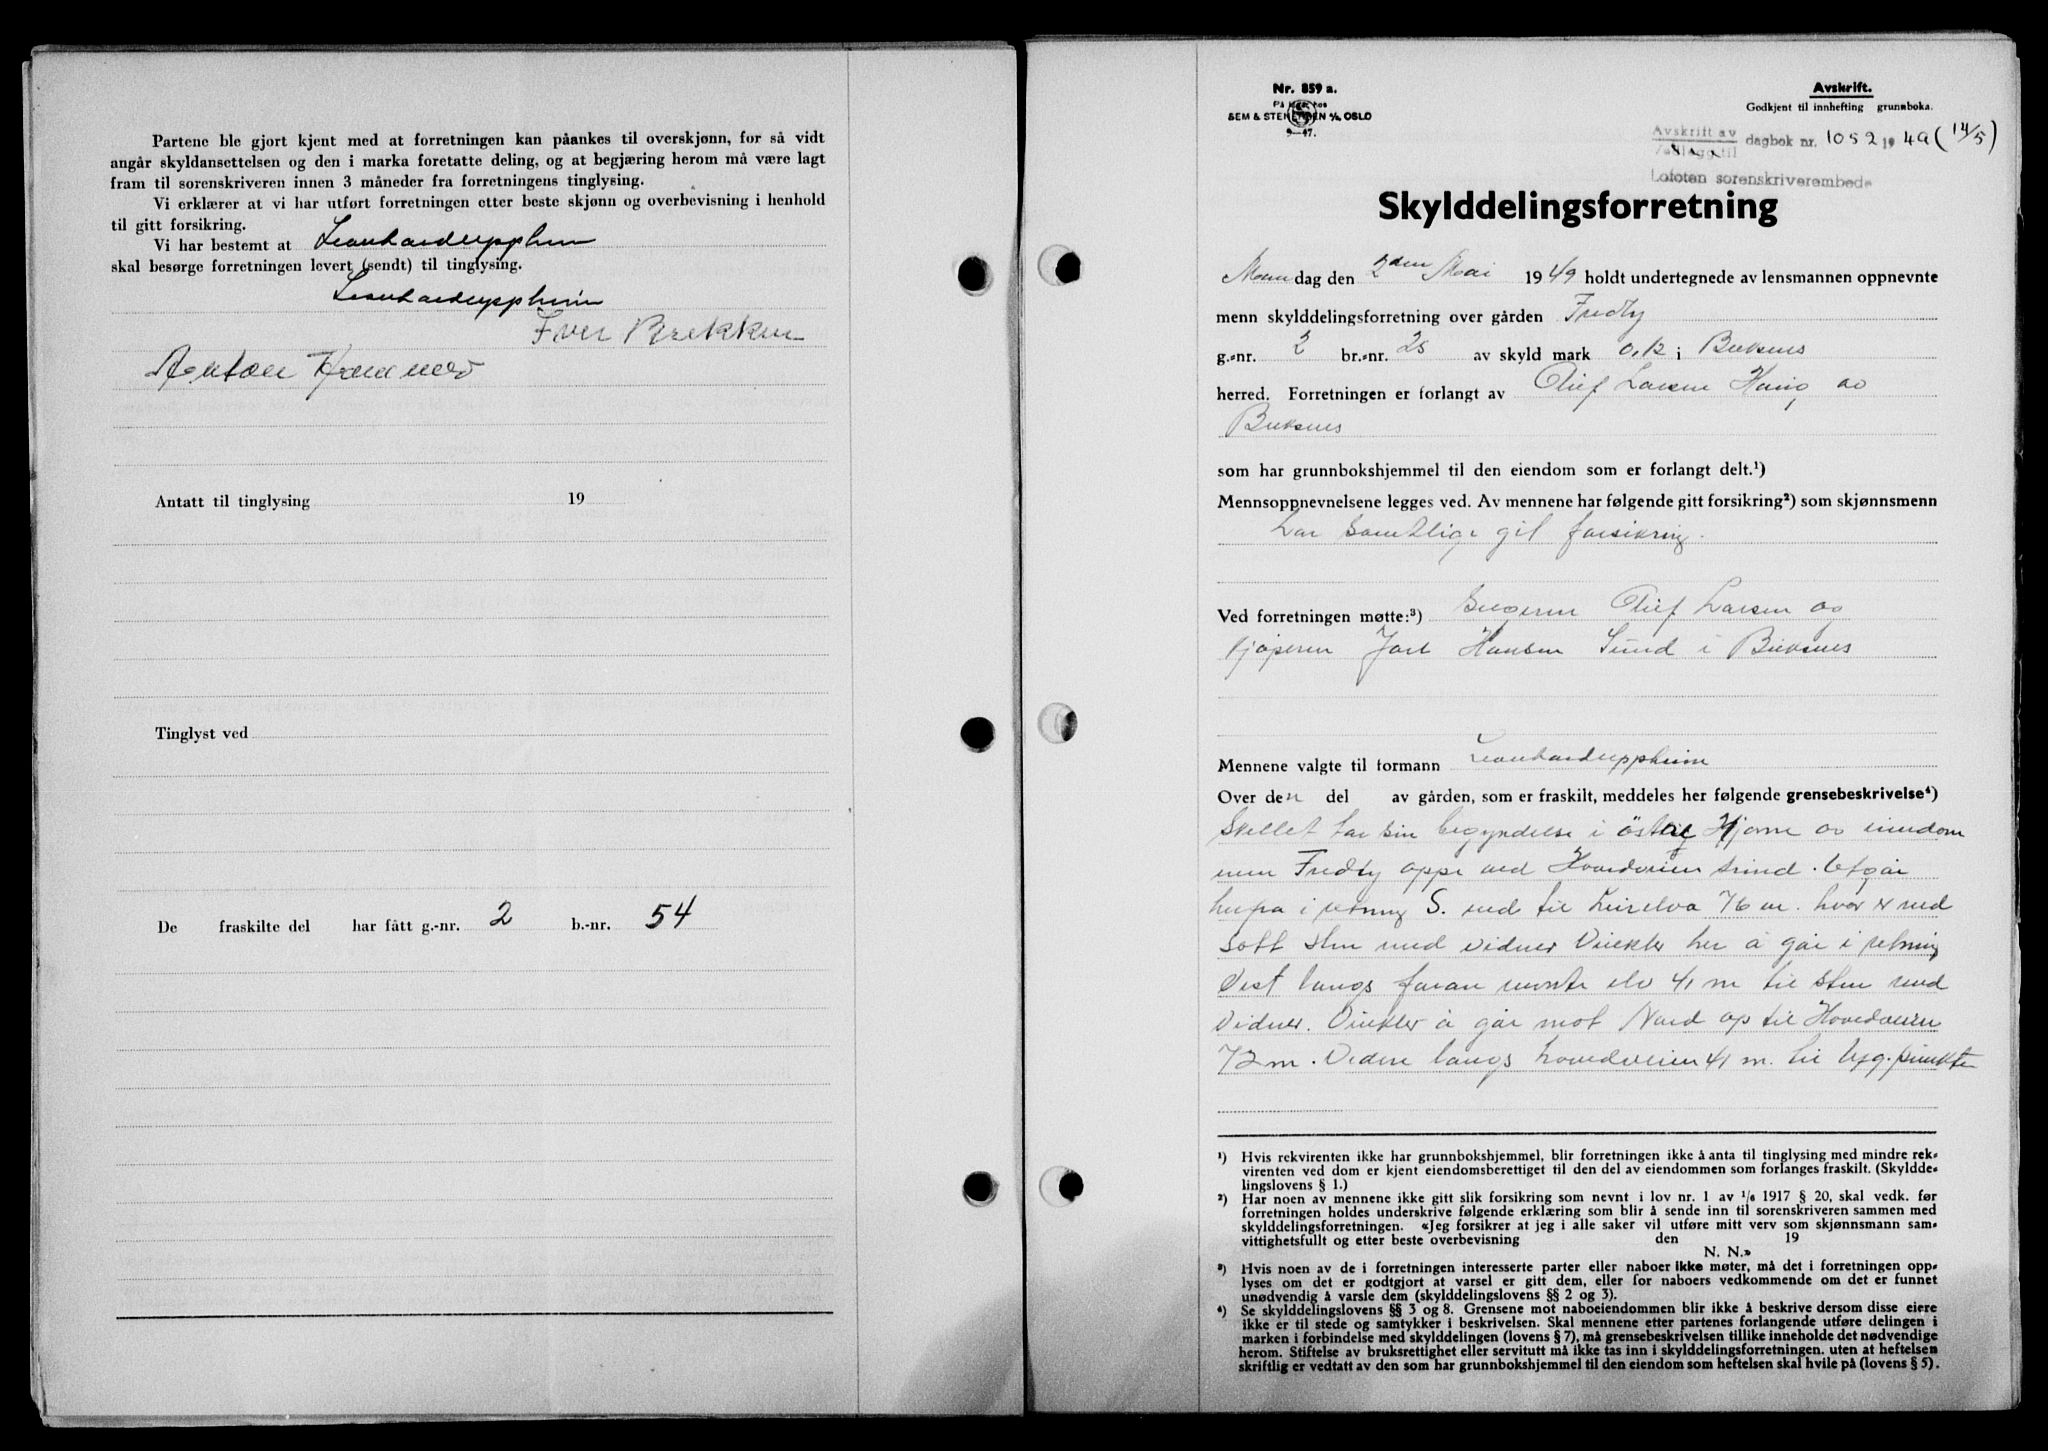 Partene ble gjort kjent med at forretningen kan påankes til overskjønn, for så vidt
angår skyldansettelsen og den i marka foretatte deling, og at begjæring herom må være lagt
fram til sorenskriveren innen 3 måneder fra forretningens tinglysing.
Vi erklærer at vi har utført forretningen etter beste skjønn og overbevisning i henhold
til gitt forsikring.
Vi har bestemt at Leonhardruppheim
skal besørge forretningen levert (sendt) til tinglysing.
Leonhardruppheim
Iver Brekken
Anton Hammer
Antatt til tinglysing 19
Tinglyst ved
De fraskilte del har fått g.-nr. 2 b.-nr. 54
Nr. 859 a.
På lager hos
SEM & STENERSEN A/S, OSLO
9—47.
Avskrift.
Godkjent til innhefting grunnboka.
Avskrift av
dagbok nr. 1052 1949 (14/5)
Lofoten sorenskriverembede
Skylddelingsforretning
Mandag den 2den Mai 1949 holdt undertegnede av lensmannen oppnevnte
menn skylddelingsforretning over gården Fredly
g.-nr. 2 br.-nr. 25 av skyld mark 0,12 i Buksnes
herred. Forretningen er forlangt av Olief Larsen Haug av
Buksnes
som har grunnbokshjemmel til den eiendom som er forlangt delt.¹)
Mennsoppnevnelsene legges ved. Av mennene har følgende gitt forsikring²) som skjønnsmenn
har samtlige git forsikring.
Ved forretningen møtte:³) Selgeren Olief Larsen og
kjøperen Jarl Hansen Sund i Buksnes
Mennene valgte til formann Leonhardruppheim
Over den del av gården, som er fraskilt, meddeles her følgende grensebeskrivelse⁴)
Skellet har sin begyndelse i østre Hjørne av eiendom
men Fredly oppe ved Hovedveien. Utgår
herfra i retning S. ned til Leirelva 76 m. hvor er ned
satt sten med vidner Vinkler her å går i retning
Vest langs elv 41 m til sten med
vidner. Vinkler å går mot Nord op til Hovedveien
72 m. Videre langs hovedveien 41 m. til byg.punkten
¹) Hvis rekvirenten ikke har grunnbokshjemmel, blir forretningen ikke å anta til tinglysing med mindre rek-
virenten ved dom er kjent eiendomsberettiget til den del av eiendommen som forlanges fraskilt. (Skyldde-
lingslovens § 1.)
²) Har noen av mennene ikke gitt slik forsikring som nevnt i lov nr. 1 av 1/6 1917 § 20, skal vedk. før
forretningen holdes underskrive følgende erklæring som blir å sende inn til sorenskriveren sammen med
skylddelingsforretningen. «Jeg forsikrer at jeg i alle saker vil utføre mitt verv som skjønnsmann sam-
vittighetsfullt og etter beste overbevisning den 19
N. N.»
³) Hvis noen av de i forretningen interesserte parter eller naboer ikke møter, må det i forretningen opp-
lyses om det er godtgjort at varsel er gitt dem, eller for naboers vedkommende om det er funnet
unødvendig å varsle dem (skylddelingslovens §§ 2 og 3).
⁴) Se skylddelingslovens §§ 3 og 8. Grensene mot naboeiendommen blir ikke å beskrive dersom disse eiere
ikke er til stede og samtykker i beskrivelsen. Skal mennene etter partenes forlangende utføre delingen i
marken i forbindelse med skylddelingen (lovens § 7), må grensebeskrivelsen tillike inneholde det nødvendige
herom. Stiftelse av bruksrettighet eller servitutt må ikke tas inn i skylddelingsforretningen, uten at heftelsen
skriftlig er vedtatt av den som har grunnbokshjemmel til den eiendom som heftelsen skal hvile på (lovens § 5).